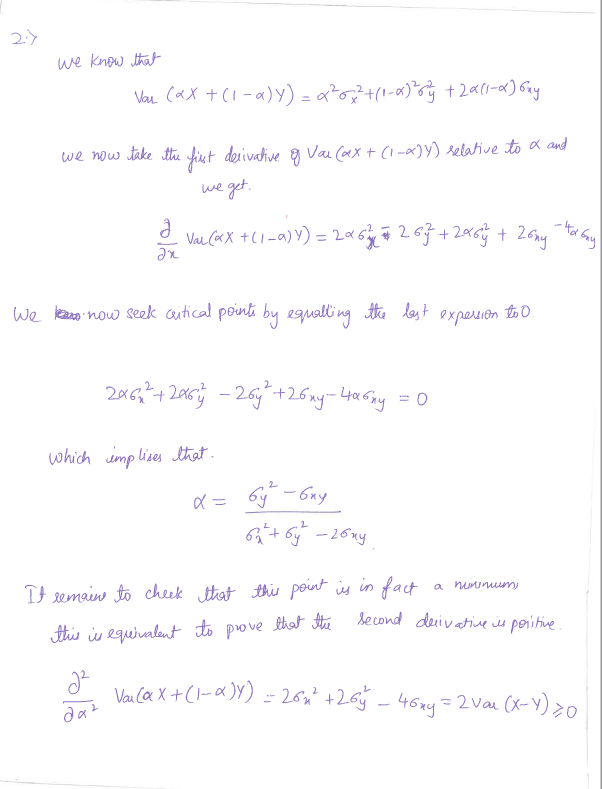 2.>
We know that
Var (αX + (1 - α)Y) = α²σx² + (1-α)²σy² + 2α(1-α)σxy
we now take the first derivative of Var(αx + (1-α)Y) relative to α and
we get.
∂/∂x Var(αX + (1-α)Y) = 2ασx² - 2σy² + 2ασy² + 2σxy - 4ασxy
We now seek critical points by equalling the last experssion to 0
2ασx² + 2ασy² - 2σy² + 2σxy - 4ασxy = 0
which implises that.
α = (σy² - σxy) / (σx² + σy² - 2σxy)
It remains to check that this point is in fact a minimum,
this is equivalent to prove that the second derivative is positive.
∂²/∂α² Var(αX + (1-α)Y) = 2σx² + 2σy² - 4σxy = 2Var(X-Y) ≥ 0